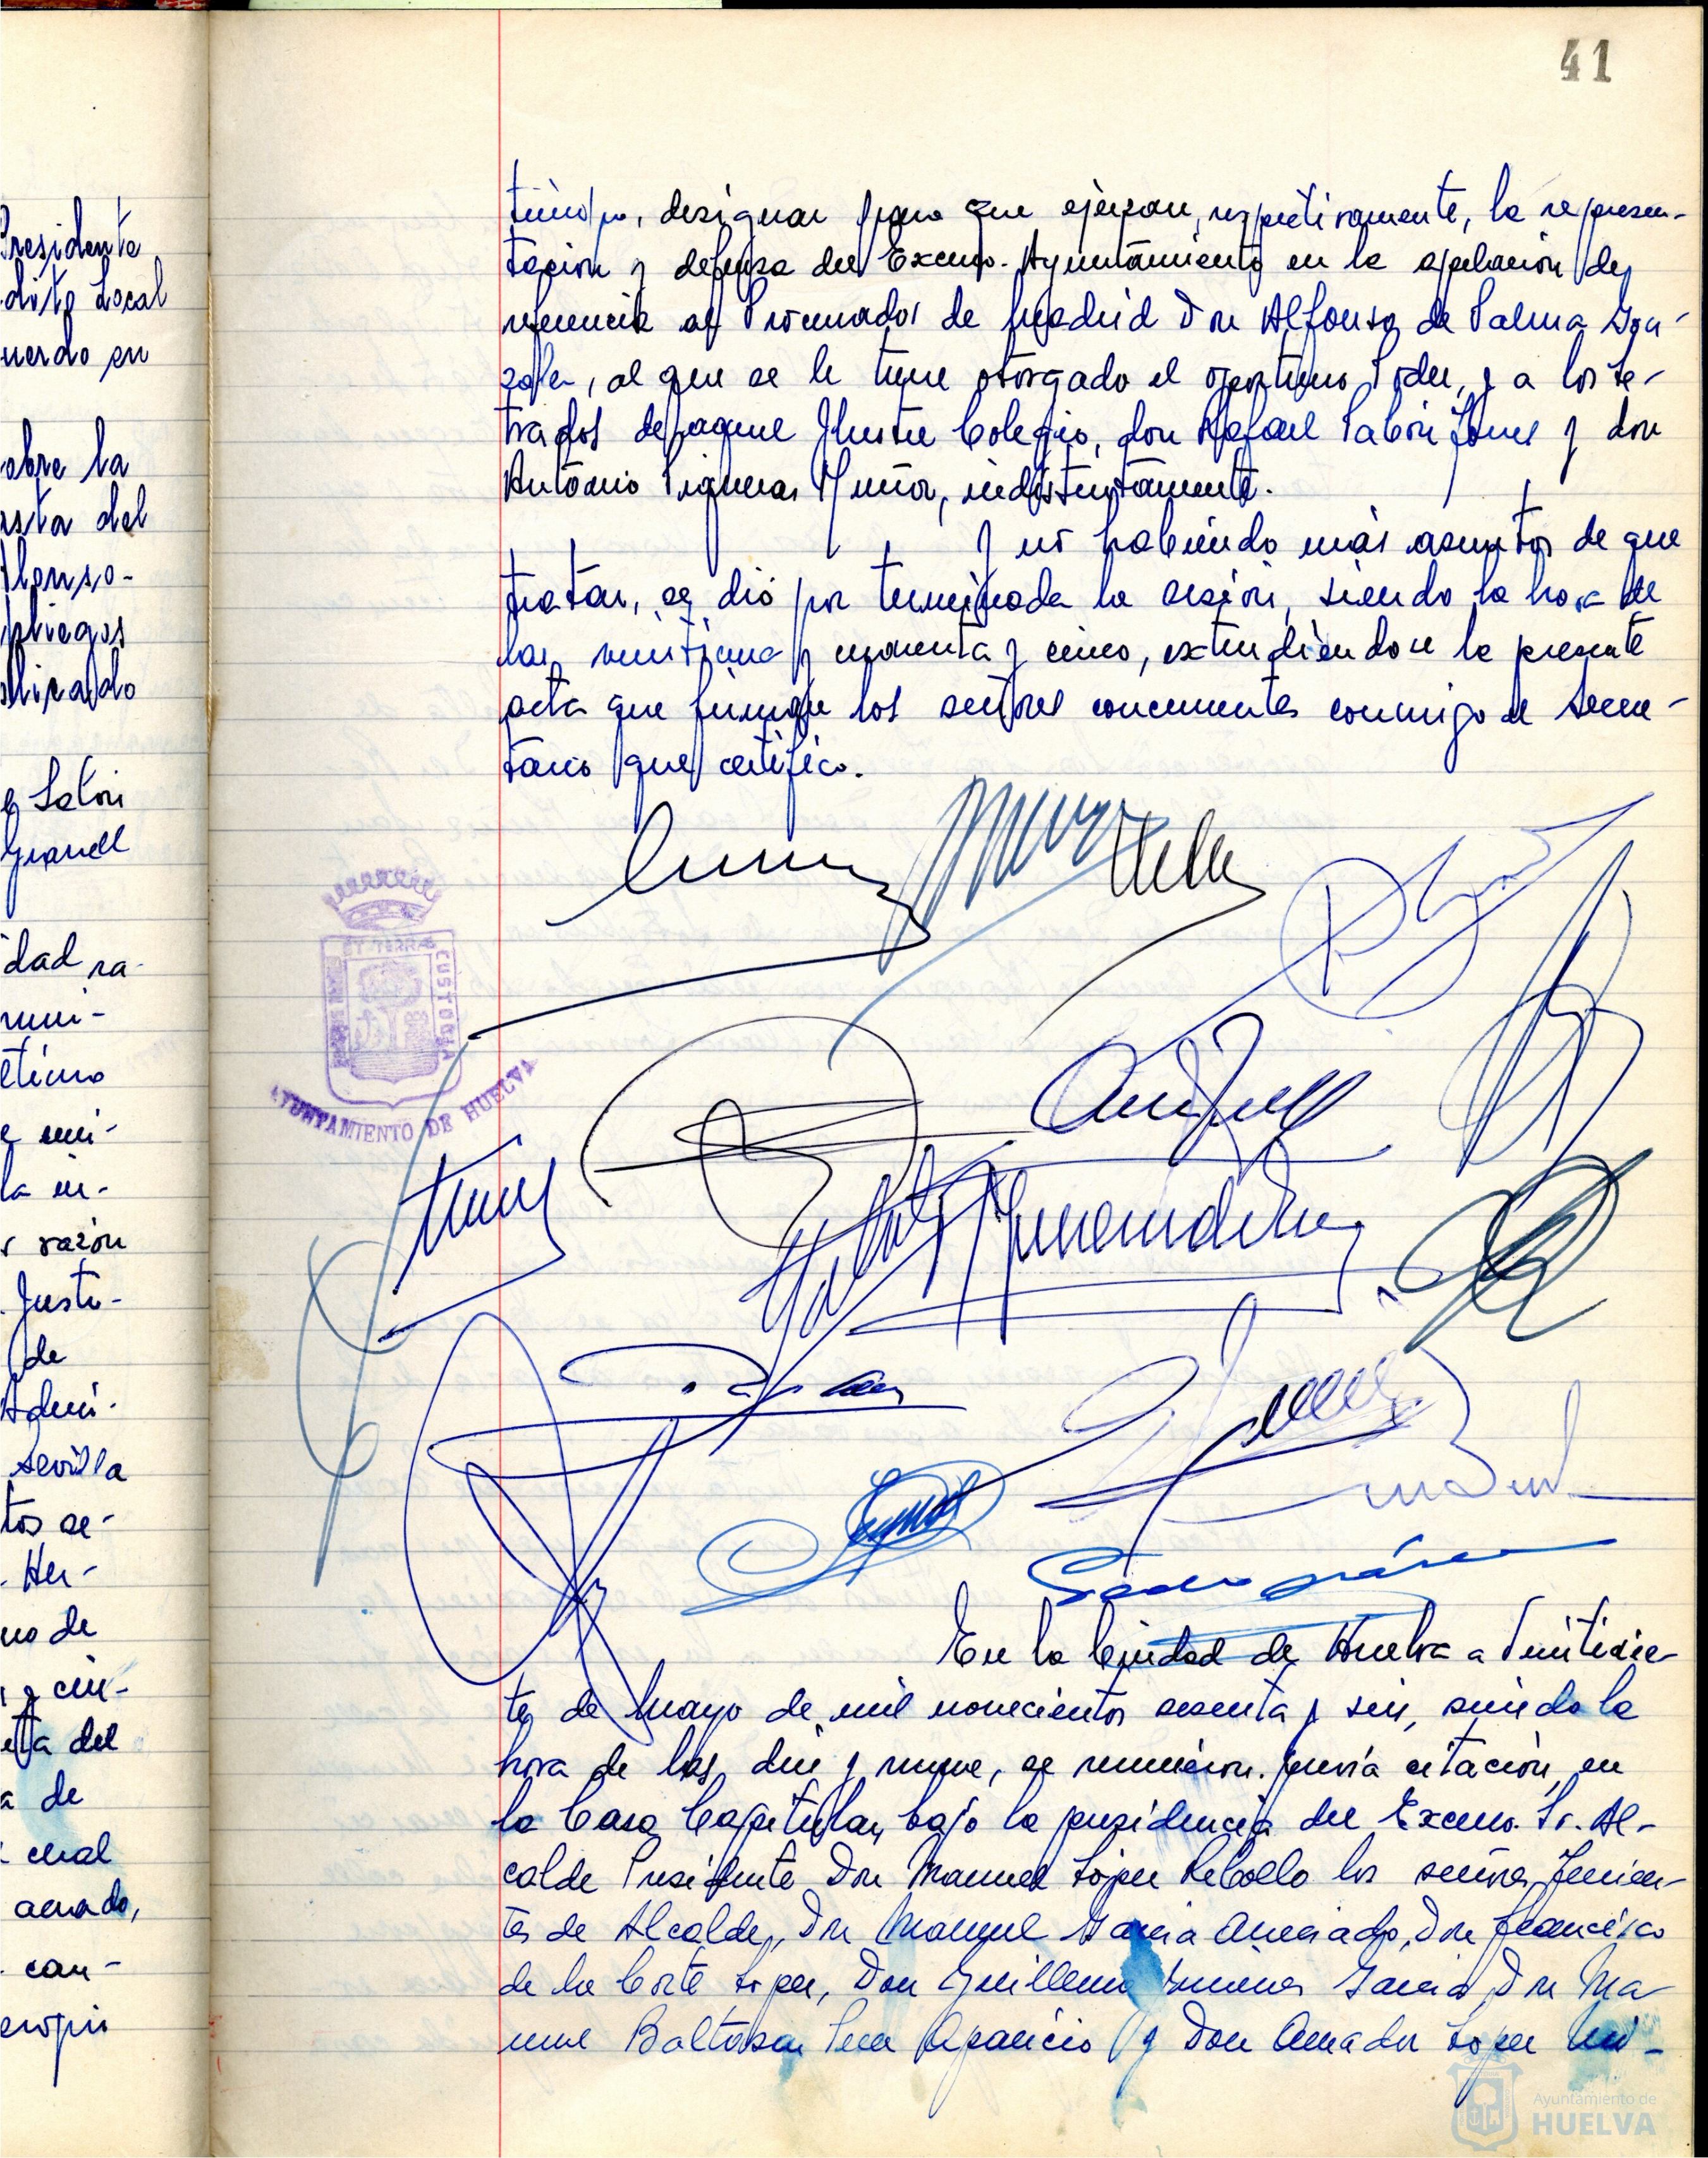 41
Presidente
dito Local
uerdo en
obre la
asta del
Alonso-
pliegos
blicado
y Satori
Granell
idad ra-
muni-
la in-
razón
Justi-
de
Admi-
Sevilla
tos se-
Her-
no de
y cin-
eta del
a de
cual
acuado,
can-
tiempo, designar para que ejerzan, respectivamente, la represen-
tación y defensa del Excmo. Ayuntamiento en la apelación de
referencia al Procurador de Madrid Don Alfonso de Palma Gon-
zalez, al que se le tiene otorgado el oportuno Poder, y a los Le-
trados de aquel Ilustre Colegio, don Rafael Pabón y don
Antonio Piqueras Muñoz, indistintamente.
Y no habiendo más asuntos de que
tratar, se dió por terminada la sesión, siendo la hora de
las veintiuna y cuarenta y cinco, extendiéndose la presente
acta que firman los señores concurrentes conmigo el Secre-
tario que certifico.
ET TERRAE
CUSTODIA
AYUNTAMIENTO DE HUELVA
En la Ciudad de Huelva a Veintisie-
te de Mayo de mil novecientos sesenta y seis, siendo la
hora de las diez y nueve, se reunieron. previa citación, en
la Casa Capitular, bajo la presidencia del Excmo. Sr. Al-
calde Presidente Don Manuel López Rebollo los señores Tenien-
tes de Alcalde, Don Manuel García Ameriado, Don Francisco
de la Corte López, Don Guillermo Jiménez García, Don Ma-
nuel Baltasar Pera Aparicio y Don Amador López Mi-
Ayuntamiento de
HUELVA